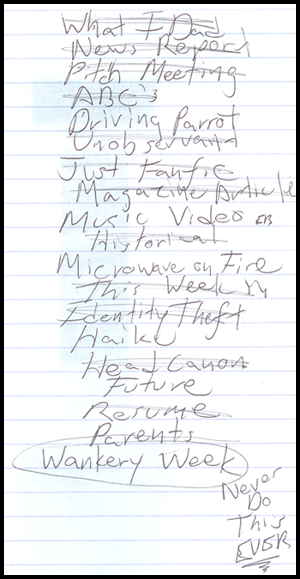 What I Dad
News Report
Pitch Meeting
ABC's
Driving Parrot
Unobservant
Just Fanfic
Magazine Article
Music Video
Historical
Microwave on Fire
This Week In
Identity Theft
Haiku
Head Canon
Future
Resume
Parents
Wankery Week
Never
Do
This
EVER